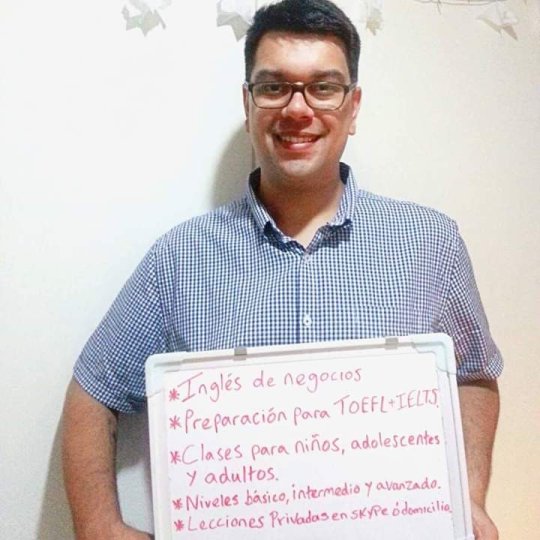 * Inglés de negocios
* Preparación para TOEFL+IELTS.
* Clases para niños, adolescentes
y adultos.
* Niveles básico, intermedio y avanzado.
* Lecciones Privadas en SKYPe ó domicilio.